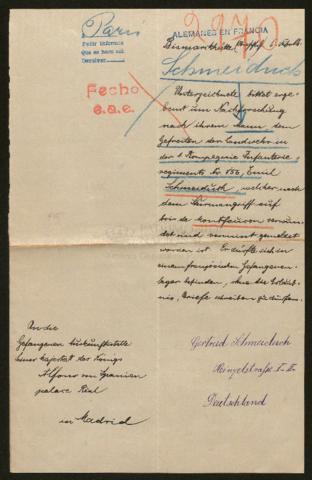 Paris
Pedir informes
Que se haro sol.
Devolver
ALEMANES EN FRANCIA
Bismarckhütte
Schmeiduch
Fecho
e.a.e.
Unterzeichnete bittet erge-
benst um Nachforschung
nach ihrem Mann dem
Gefreiten der Landwehr in
der 1 Kompagnie Infanterie,
regiments Nr 156, Emil
Schmeiduch, welcher nach
dem Sturmangriff auf
bois de Montfaucon verwun-
det und vermisst gemeldet
worden ist. Er dürfte sich in
einem französischen Gefangenen-
lager befinden, ohne die Erlaub-
nis, Briefe schreiben zu dürfen.
An die
Gefangenen Auskunftstelle
Seiner Majestät des Königs
Alfons von Spanien
palace Real
in Madrid
Gertrud Schmeiduch
Deutschland